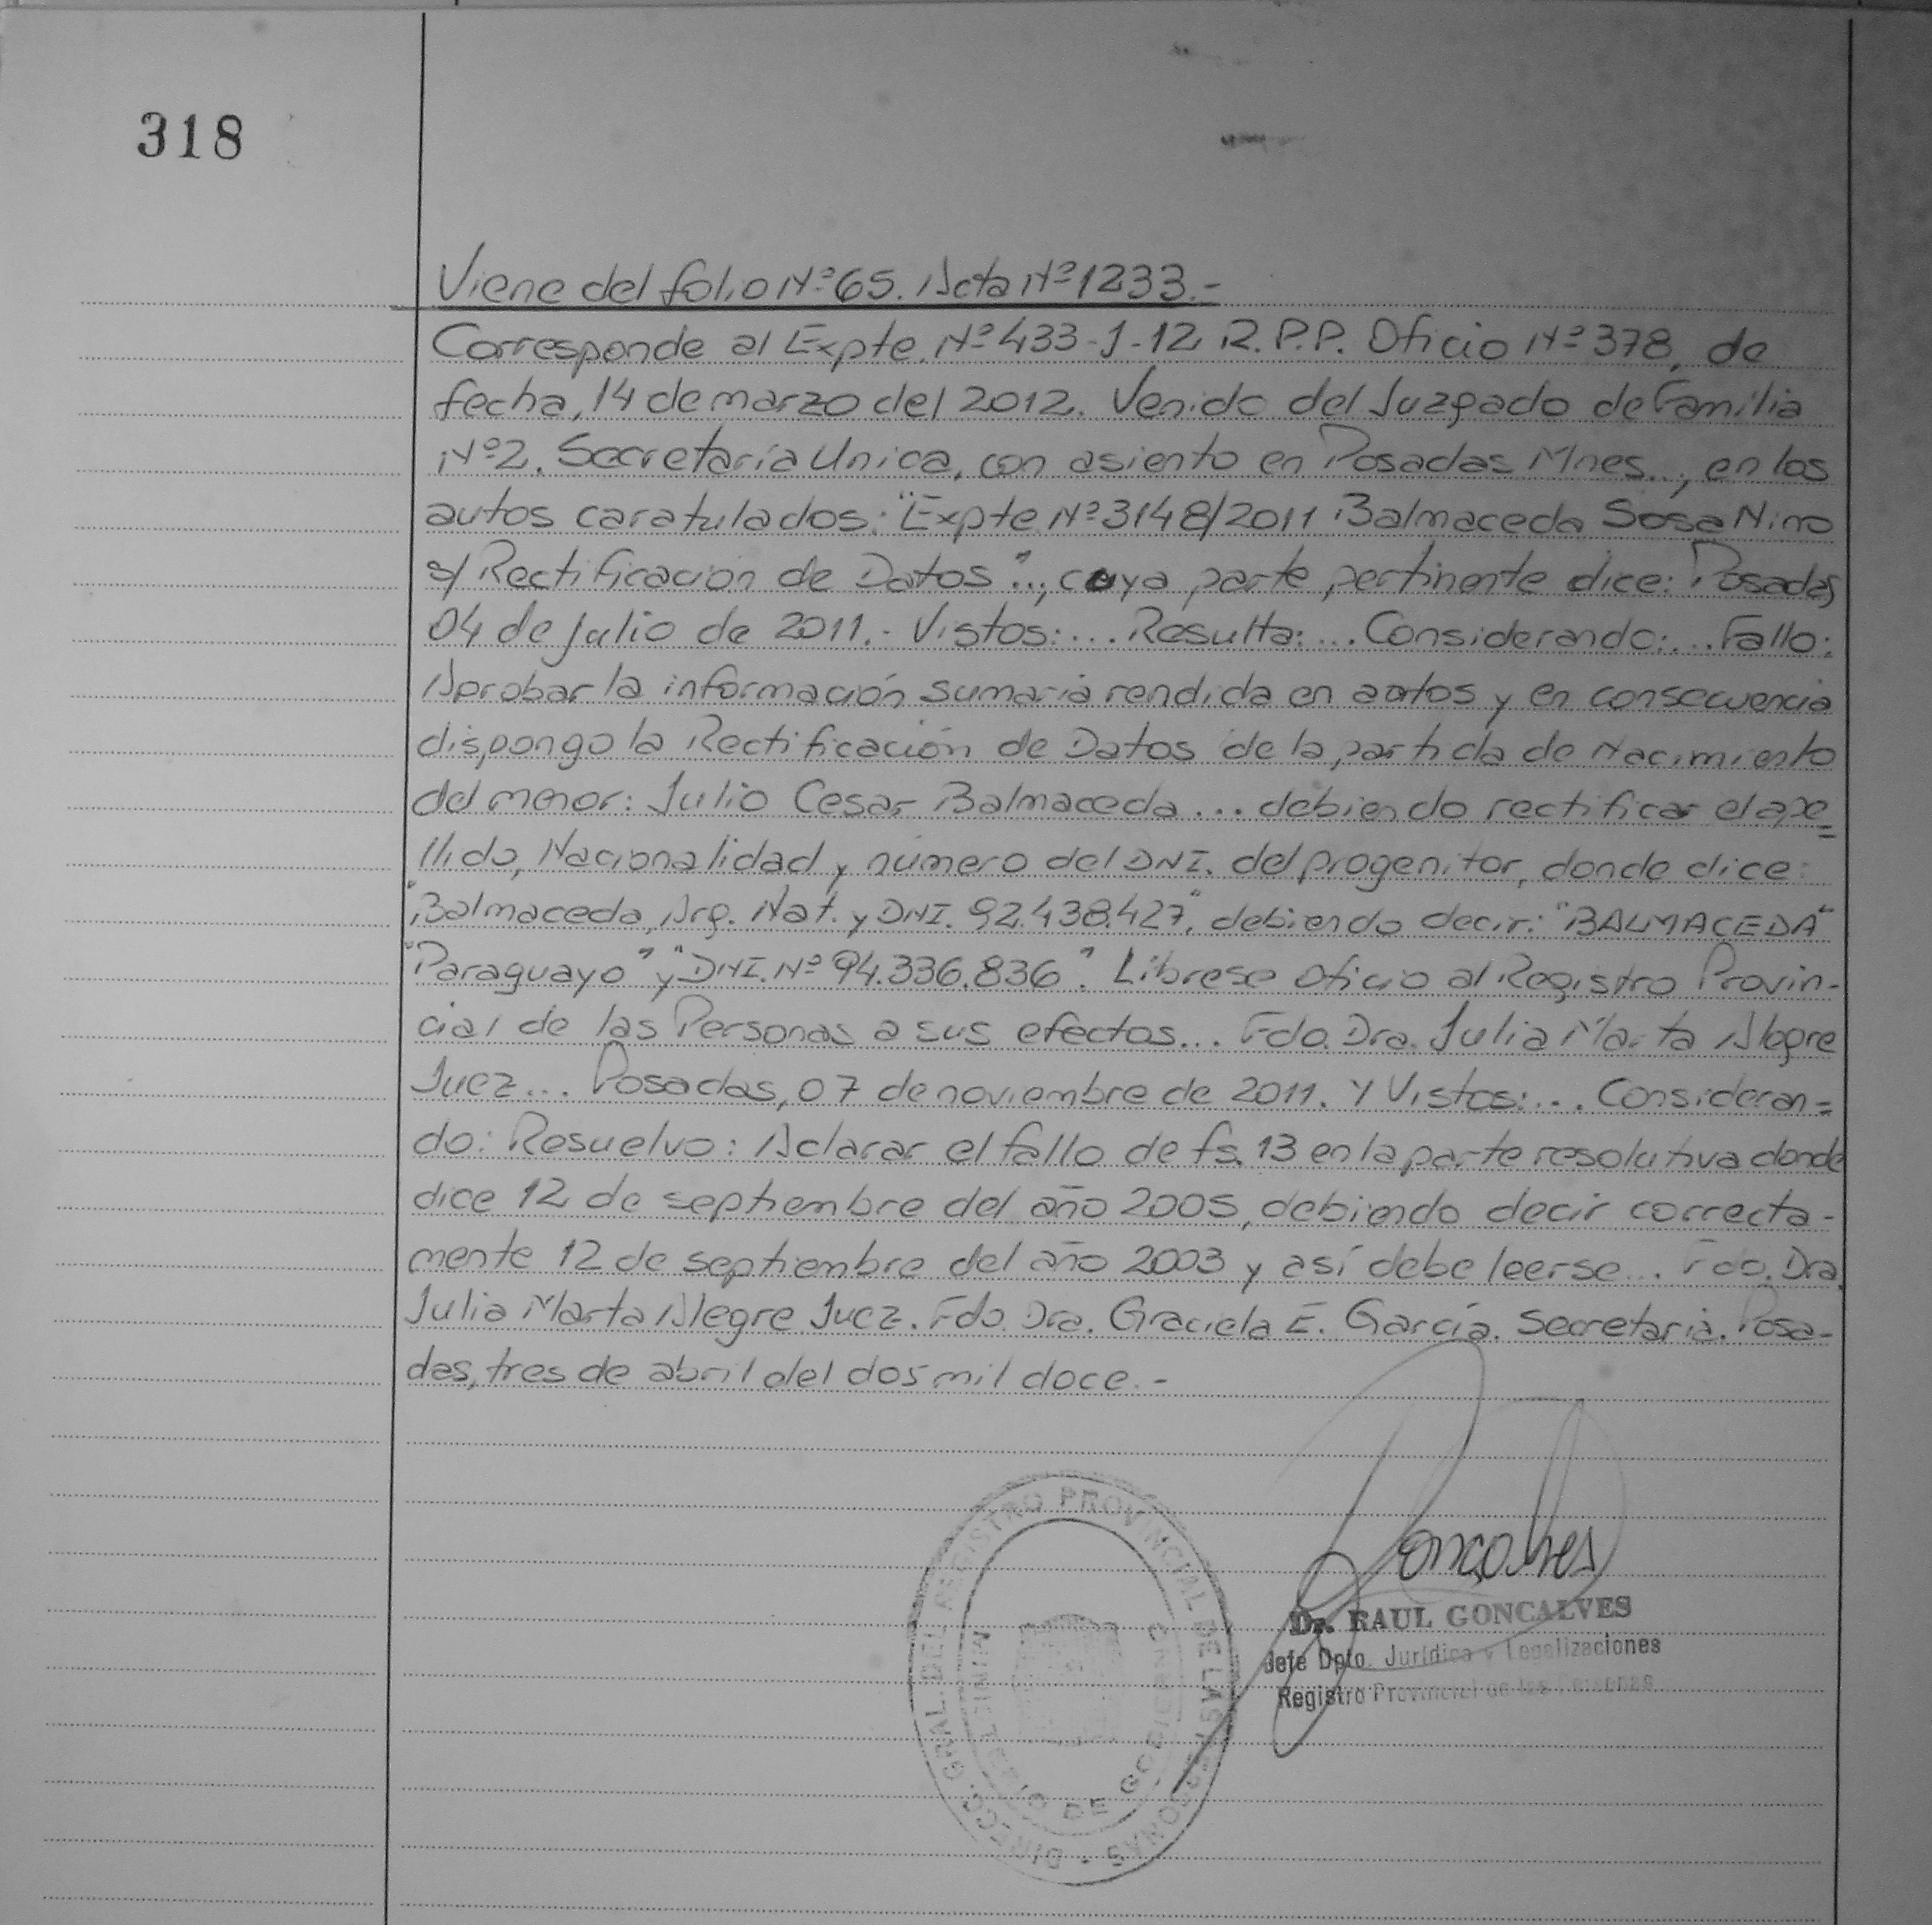 318
Viene del folio Nº 65. Acta Nº 1233.-
Corresponde al Expte. Nº 433-J-12 R.P.P. Oficio Nº 378, de
fecha, 14 de marzo del 2012. Venido del Juzgado de Familia
Nº 2. Secretaría Unica, con asiento en Posadas Mnes.., en los
autos caratulados: "Expte. Nº 3148/2011 Balmaceda Sosa Nino
s/ Rectificación de Datos"., cuya parte pertinente dice: Posadas
04 de julio de 2011.- Vistos:... Resulta:... Considerando:... Fallo:
Aprobar la información sumaria rendida en autos y en consecuencia
dispongo la Rectificación de Datos de la partida de Nacimiento
del menor: Julio Cesar Balmaceda... debiendo rectificar el ape=
llido, Nacionalidad y número del DNI. del progenitor, donde dice:
"Balmaceda, Arg. Nat. y DNI. 92.438.427", debiendo decir: "BALMACEDA"
"Paraguayo" y "DNI. Nº 94.336.836". Librese oficio al Registro Provin-
cial de las Personas a sus efectos... Fdo. Dra. Julia Marta Alegre
Juez... Posadas, 07 de noviembre de 2011. Y Vistos:... Consideran=
do: Resuelvo: Aclarar el fallo de fs. 13 en la parte resolutiva donde
dice 12 de septiembre del año 2005, debiendo decir correcta-
mente 12 de septiembre del año 2003 y así debe leerse... Fdo. Dra.
Julia Marta Alegre Juez. Fdo. Dra. Graciela E. García. Secretaria. Posa-
das, tres de abril del dos mil doce.-
Goncalves
Dr. RAUL GONCALVES
Jefe Dpto. Jurídica y Legalizaciones
Registro Provincial de las Personas
DIRECC. GRAL. DEL REGISTRO PROVINCIAL DE LAS PERSONAS
MINISTERIO DE GOBIERNO